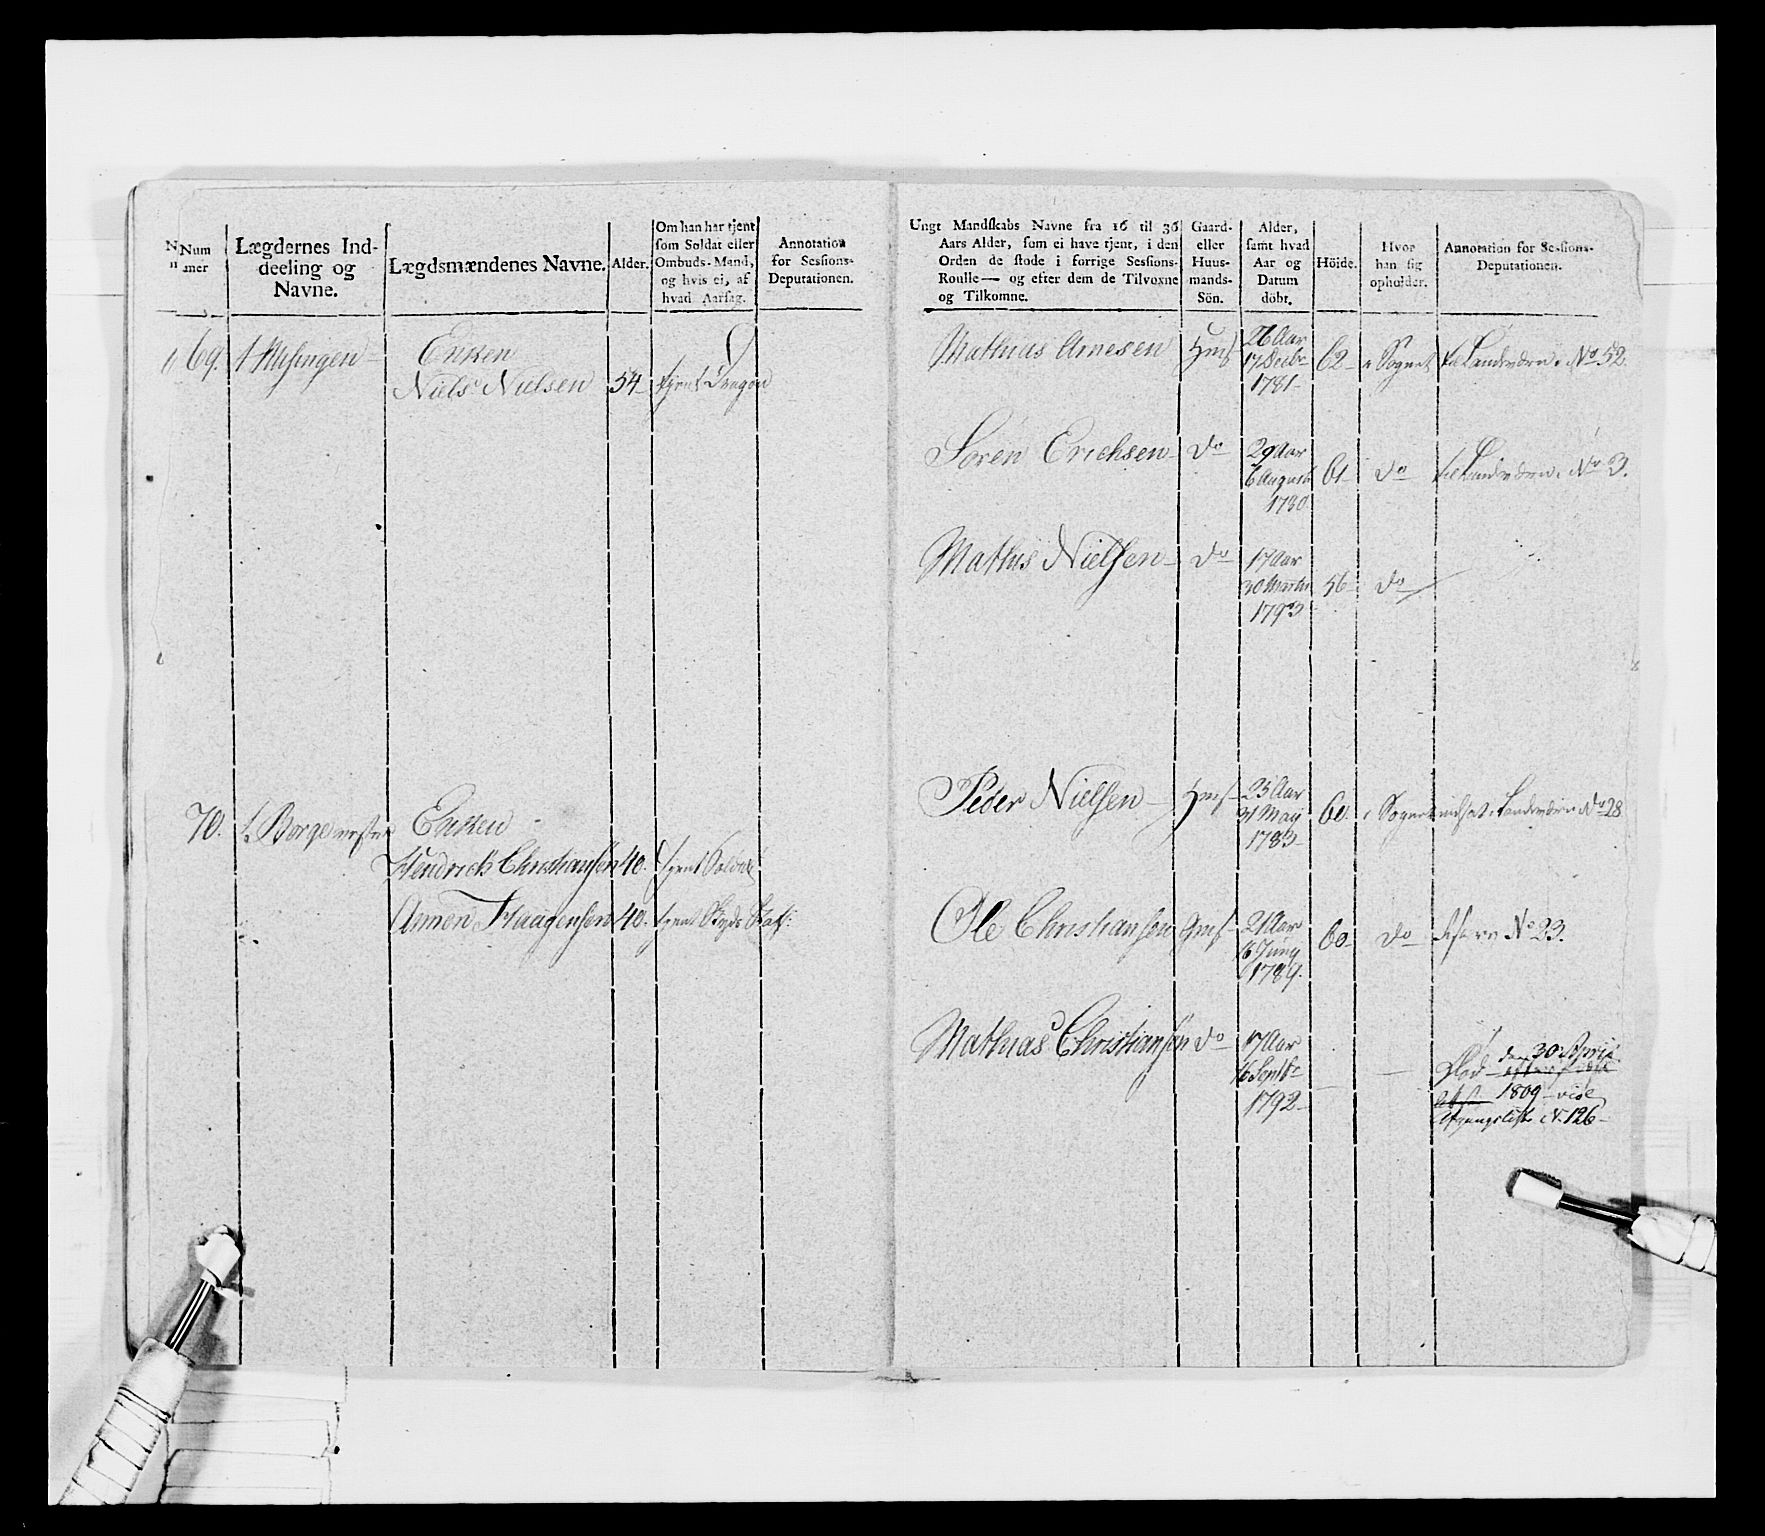 Num
mer
Lægdernes Ind-
deeling og
Navne.
Lægdsmændenes Navne.
Alder.
Om han har tjent
som Soldat eller
Ombuds-Mand,
og hvis ei, af
hvad Aarsag.
Annotation
for Sessions-
Deputationen.
69.
Enken
Niels Nielsen 54 tjent Dragon
70. Borge
Enken
Hendrich Christiansen 40. tjent Soldat
Amon Haagensen 40. tjent
Ungt Mandskabs Navne fra 16 til 36
Aars Alder, som ei have tjent, i den
Orden de stode i forrige Sessions-
Roulle — og efter dem de Tilvoxne
og Tilkomne.
Gaard-
eller
Huus-
mands-
Sön.
Alder,
samt hvad
Aar og
Datum
döbt.
Höide.
Hvor
han sig
opholder.
Annotation for Sessions-
Deputationen.
Mathias Arnesen Hmss 26 Aar
17 Decbr 62 i Sognet til Landværn No 52.
1781
Sören Erichsen Do 29 Aar
6 August 61 Do til Landværn No 3.
1780
Mathis Nielsen Do 17 Aar
30 Martii 56 Do
1793
Peder Nielsen Hmss 25 Aar
31 May 60. i Sognet Landværn No 28
1783
Ole Christiansen Gmss 21 Aar
16 Juny 60 Do No 23.
1789.
Mathias Christiansen Do 17 Aar
16 Septbr
1792
Död den 30 April
1809 vide
Afgangsliste N. 126